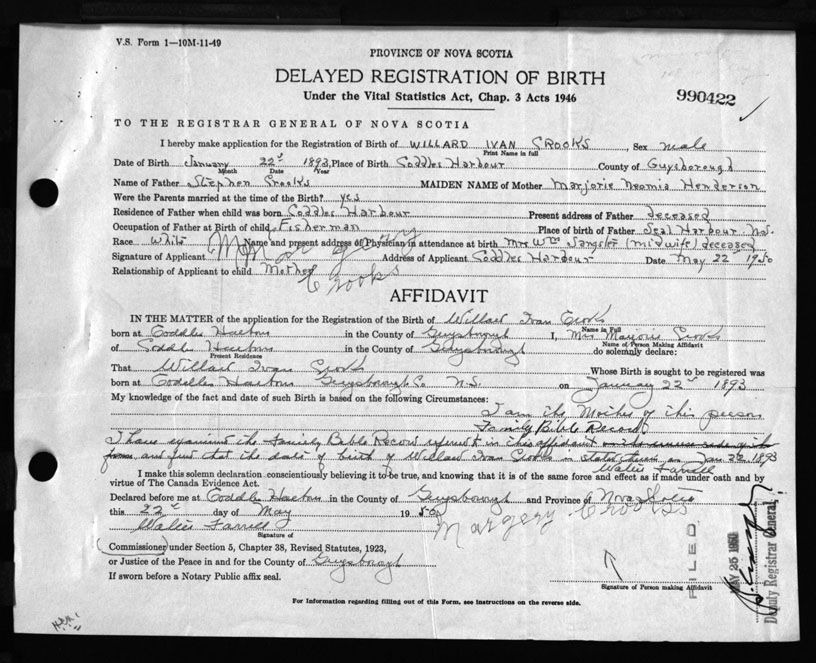 V.S. Form 1—10M-11-49
PROVINCE OF NOVA SCOTIA
DELAYED REGISTRATION OF BIRTH
Under the Vital Statistics Act, Chap. 3 Acts 1946
990422
TO THE REGISTRAR GENERAL OF NOVA SCOTIA
I hereby make application for the Registration of Birth of WILLARD IVAN CROOKS, Sex male
Print Name in full
Date of Birth January 22d 1893, Place of Birth Coddles Harbour County of Guysborough
Month Date Year
Name of Father Stephen Crooks MAIDEN NAME of Mother Marjorie Neomia Henderson
Were the Parents married at the time of the Birth? yes
Residence of Father when child was born Coddles Harbour Present address of Father deceased
Occupation of Father at Birth of child Fisherman Place of birth of Father Seal Harbour N.S.
Race White Name and present address of Physician in attendance at birth Mrs Wm Sangster (midwife) deceased
Signature of Applicant Address of Applicant Coddles Harbour Date May 22d 1950
Relationship of Applicant to child Mother
Crooks
AFFIDAVIT
IN THE MATTER of the application for the Registration of the Birth of Willard Ivan Crooks
Name in Full
born at Coddles Harbour in the County of Guysborough I, Mrs Marjorie Crooks
Name of Person Making Affidavit
of Coddles Harbour in the County of Guysborough do solemnly declare:
Present Residence
That Willard Ivan Crooks Whose Birth is sought to be registered was
born at Coddles Harbour Guysborough Co N.S. on January 22d 1893
My knowledge of the fact and date of such Birth is based on the following Circumstances:
I am the Mother of this person
Family Bible Record
I have examined the Family Bible Record referred in this affidavit
and find that the date of birth of Willard Ivan Crooks is stated therein as Jan 22 1893
Walter Farrell
I make this solemn declaration conscientiously believing it to be true, and knowing that it is of the same force and effect as if made under oath and by
virtue of The Canada Evidence Act.
Declared before me at Coddles Harbour in the County of Guysborough and Province of Nova Scotia
this 22d day of May 1950
Margery Crooks
Walter Farrell
Signature of
Commissioner under Section 5, Chapter 38, Revised Statutes, 1923,
or Justice of the Peace in and for County of Guysborough
If sworn before a Notary Public affix seal.
Signature of Person making Affidavit
FILED
MAY 25 1950
Deputy Registrar General
For Information regarding filling out of this Form, see Instructions on the reverse side.